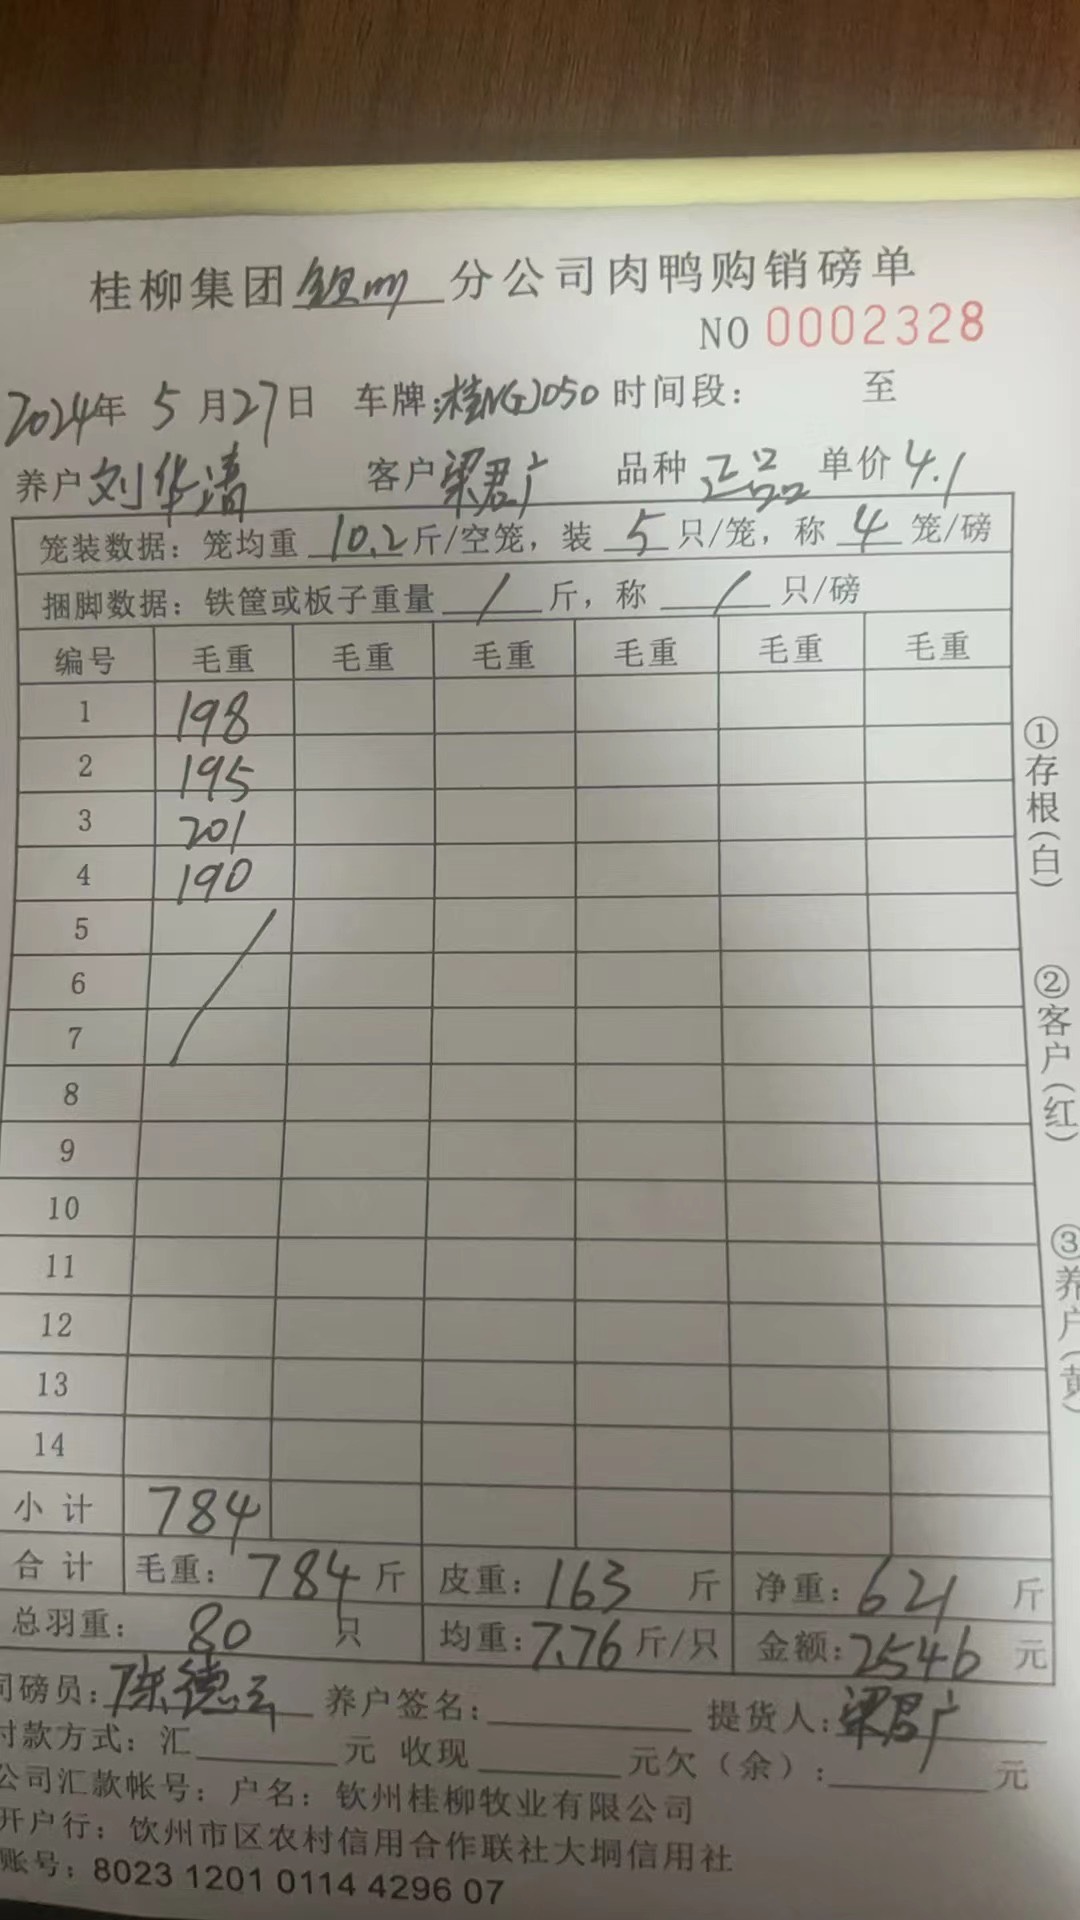 桂柳集团钦州分公司肉鸭购销磅单
NO 0002328
2024年 5月27日 车牌:桂NGJ050 时间段: 至
养户 刘华清 客户 梁君广 品种 正品 单价 4.1
笼装数据: 笼均重 10.2 斤/空笼, 装 5 只/笼, 称 4 笼/磅
捆脚数据: 铁筐或板子重量 / 斤, 称 / 只/磅
编号 毛重 毛重 毛重 毛重 毛重 毛重
1 198
2 195
3 201
4 190
5
6
7
8
9
10
11
12
13
14
小计 784
合计 毛重: 784 斤 皮重: 163 斤 净重: 621 斤
总羽重: 80 只 均重: 7.76 斤/只 金额: 2546 元
司磅员: 陈德云 养户签名: 提货人: 梁君广
付款方式: 汇 元 收现 元欠(余): 元
公司汇款帐号: 户名: 钦州桂柳牧业有限公司
开户行: 钦州市区农村信用合作联社大垌信用社
账号: 8023 1201 0114 4296 07
①存根(白)
②客户(红)
③养户(黄)